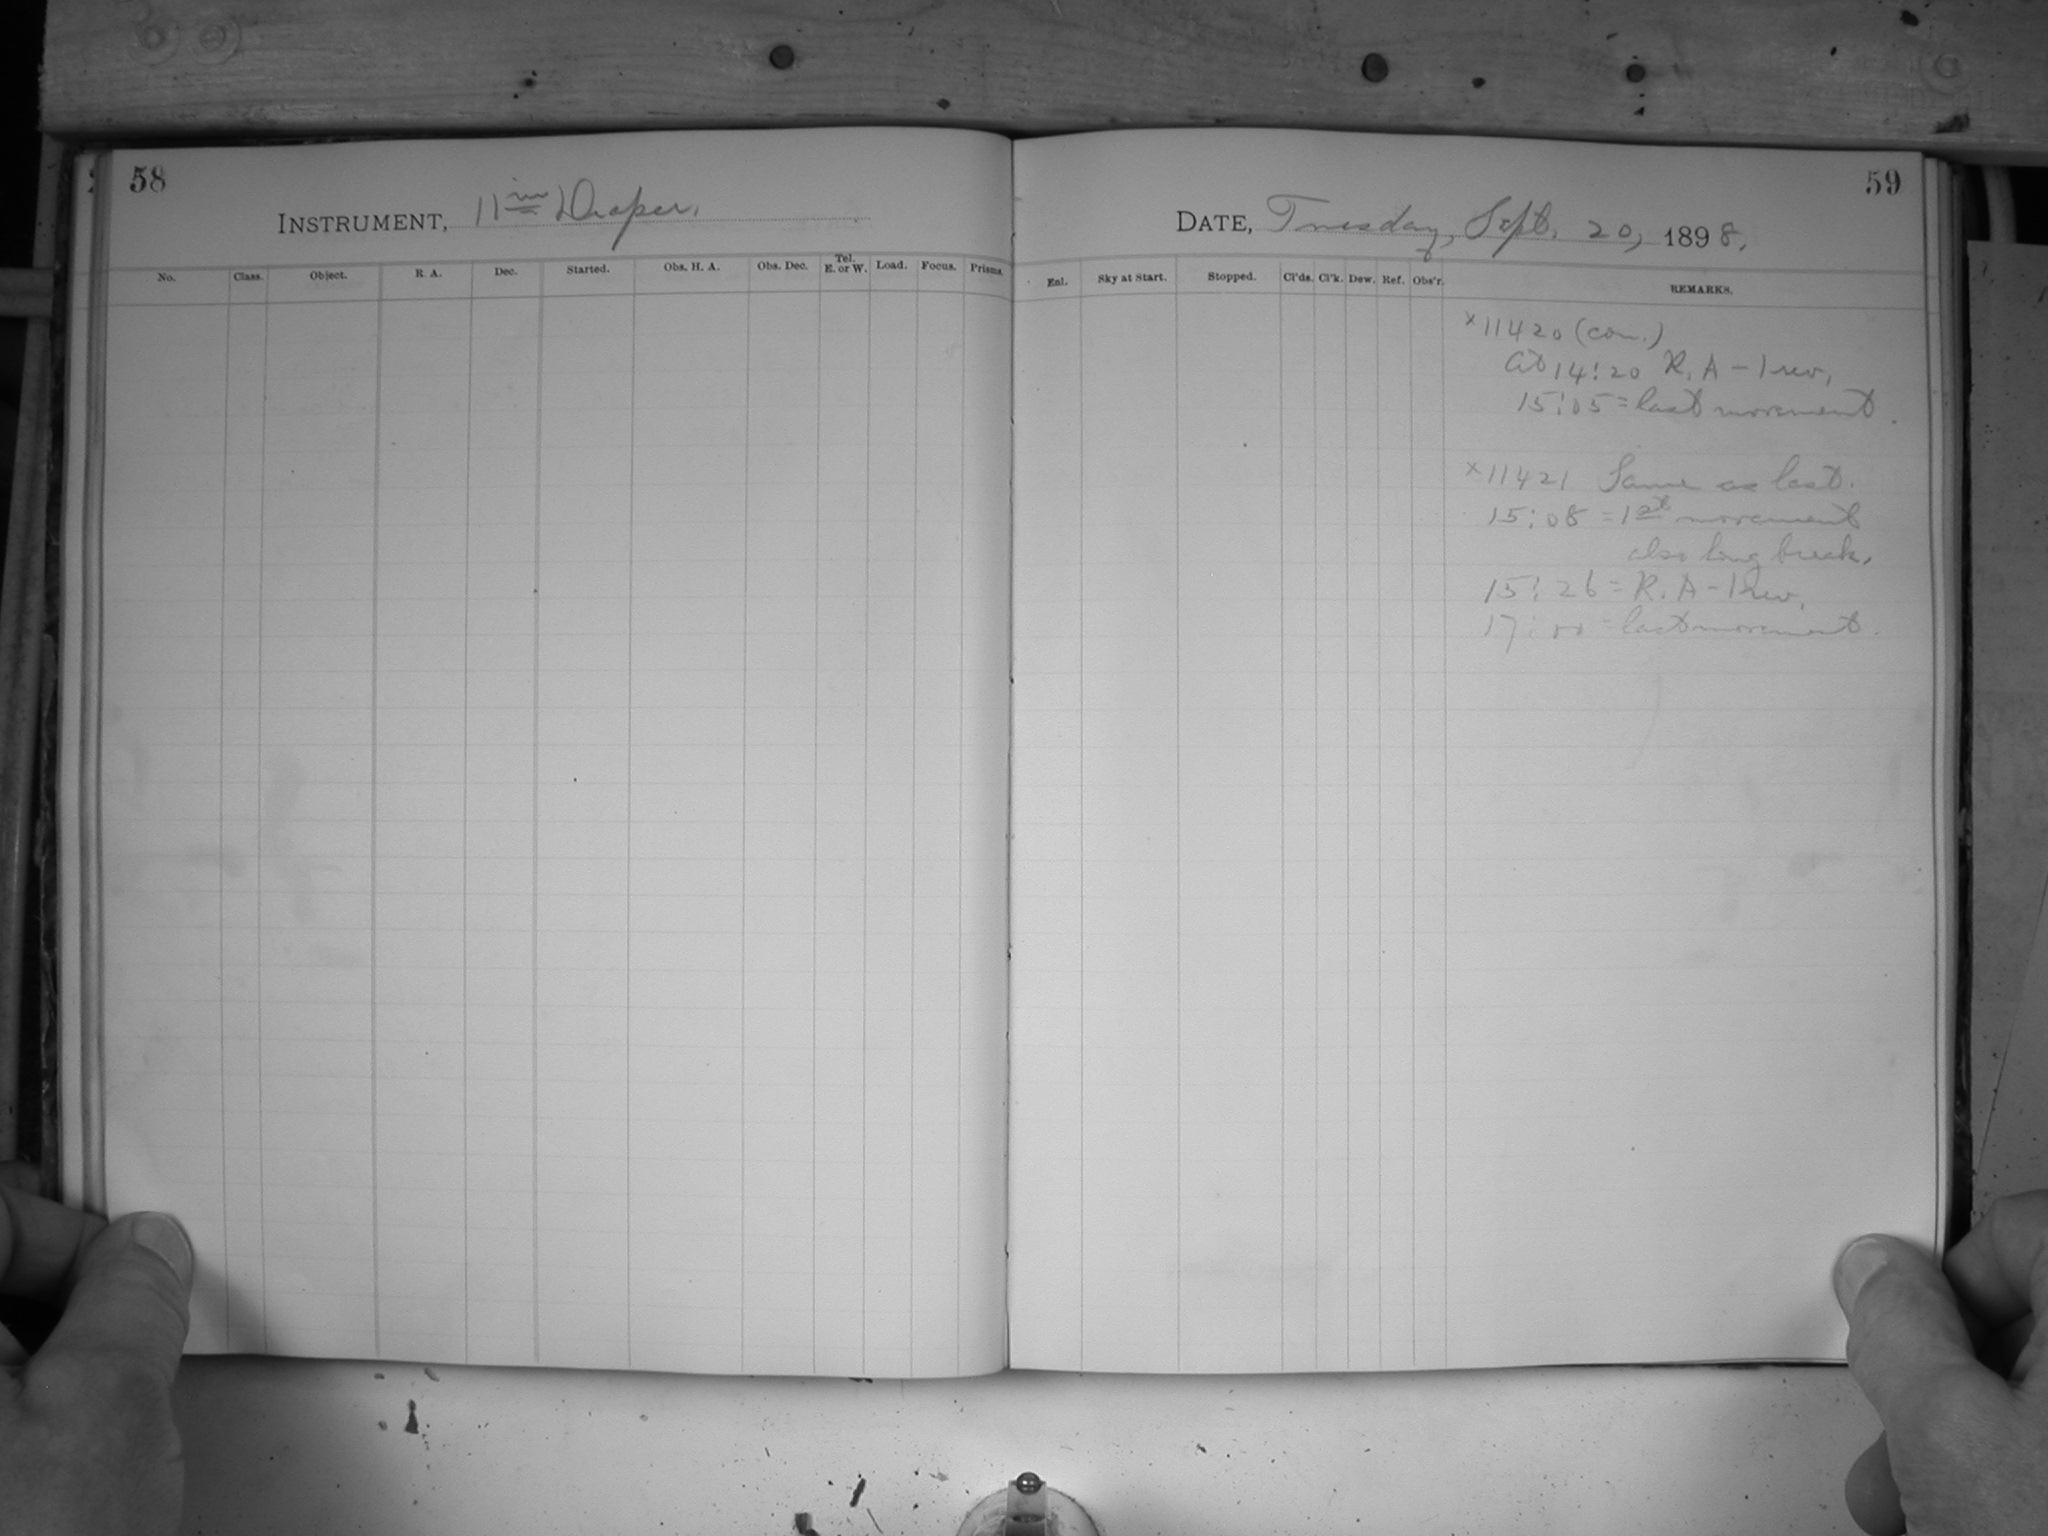 58
INSTRUMENT, 11 in Draper.
No. Class. Object. R. A. Dec. Started. Obs. H. A. Obs. Dec. Tel. E. or W. Load. Focus. Prisms.
59
DATE, Tuesday, Sept. 20, 1898.
Enl. Sky at Start. Stopped. Cl'ds. Cl'k. Dew. Ref. Obs'r. REMARKS.
x11420 (con.)
At 14:20 R. A - 1 rev.
15:05 = last movement.
x11421 Same as last.
15:08 = 1st movement
also long break.
15:26 = R. A - 1 rev.
17:00 = last movement.